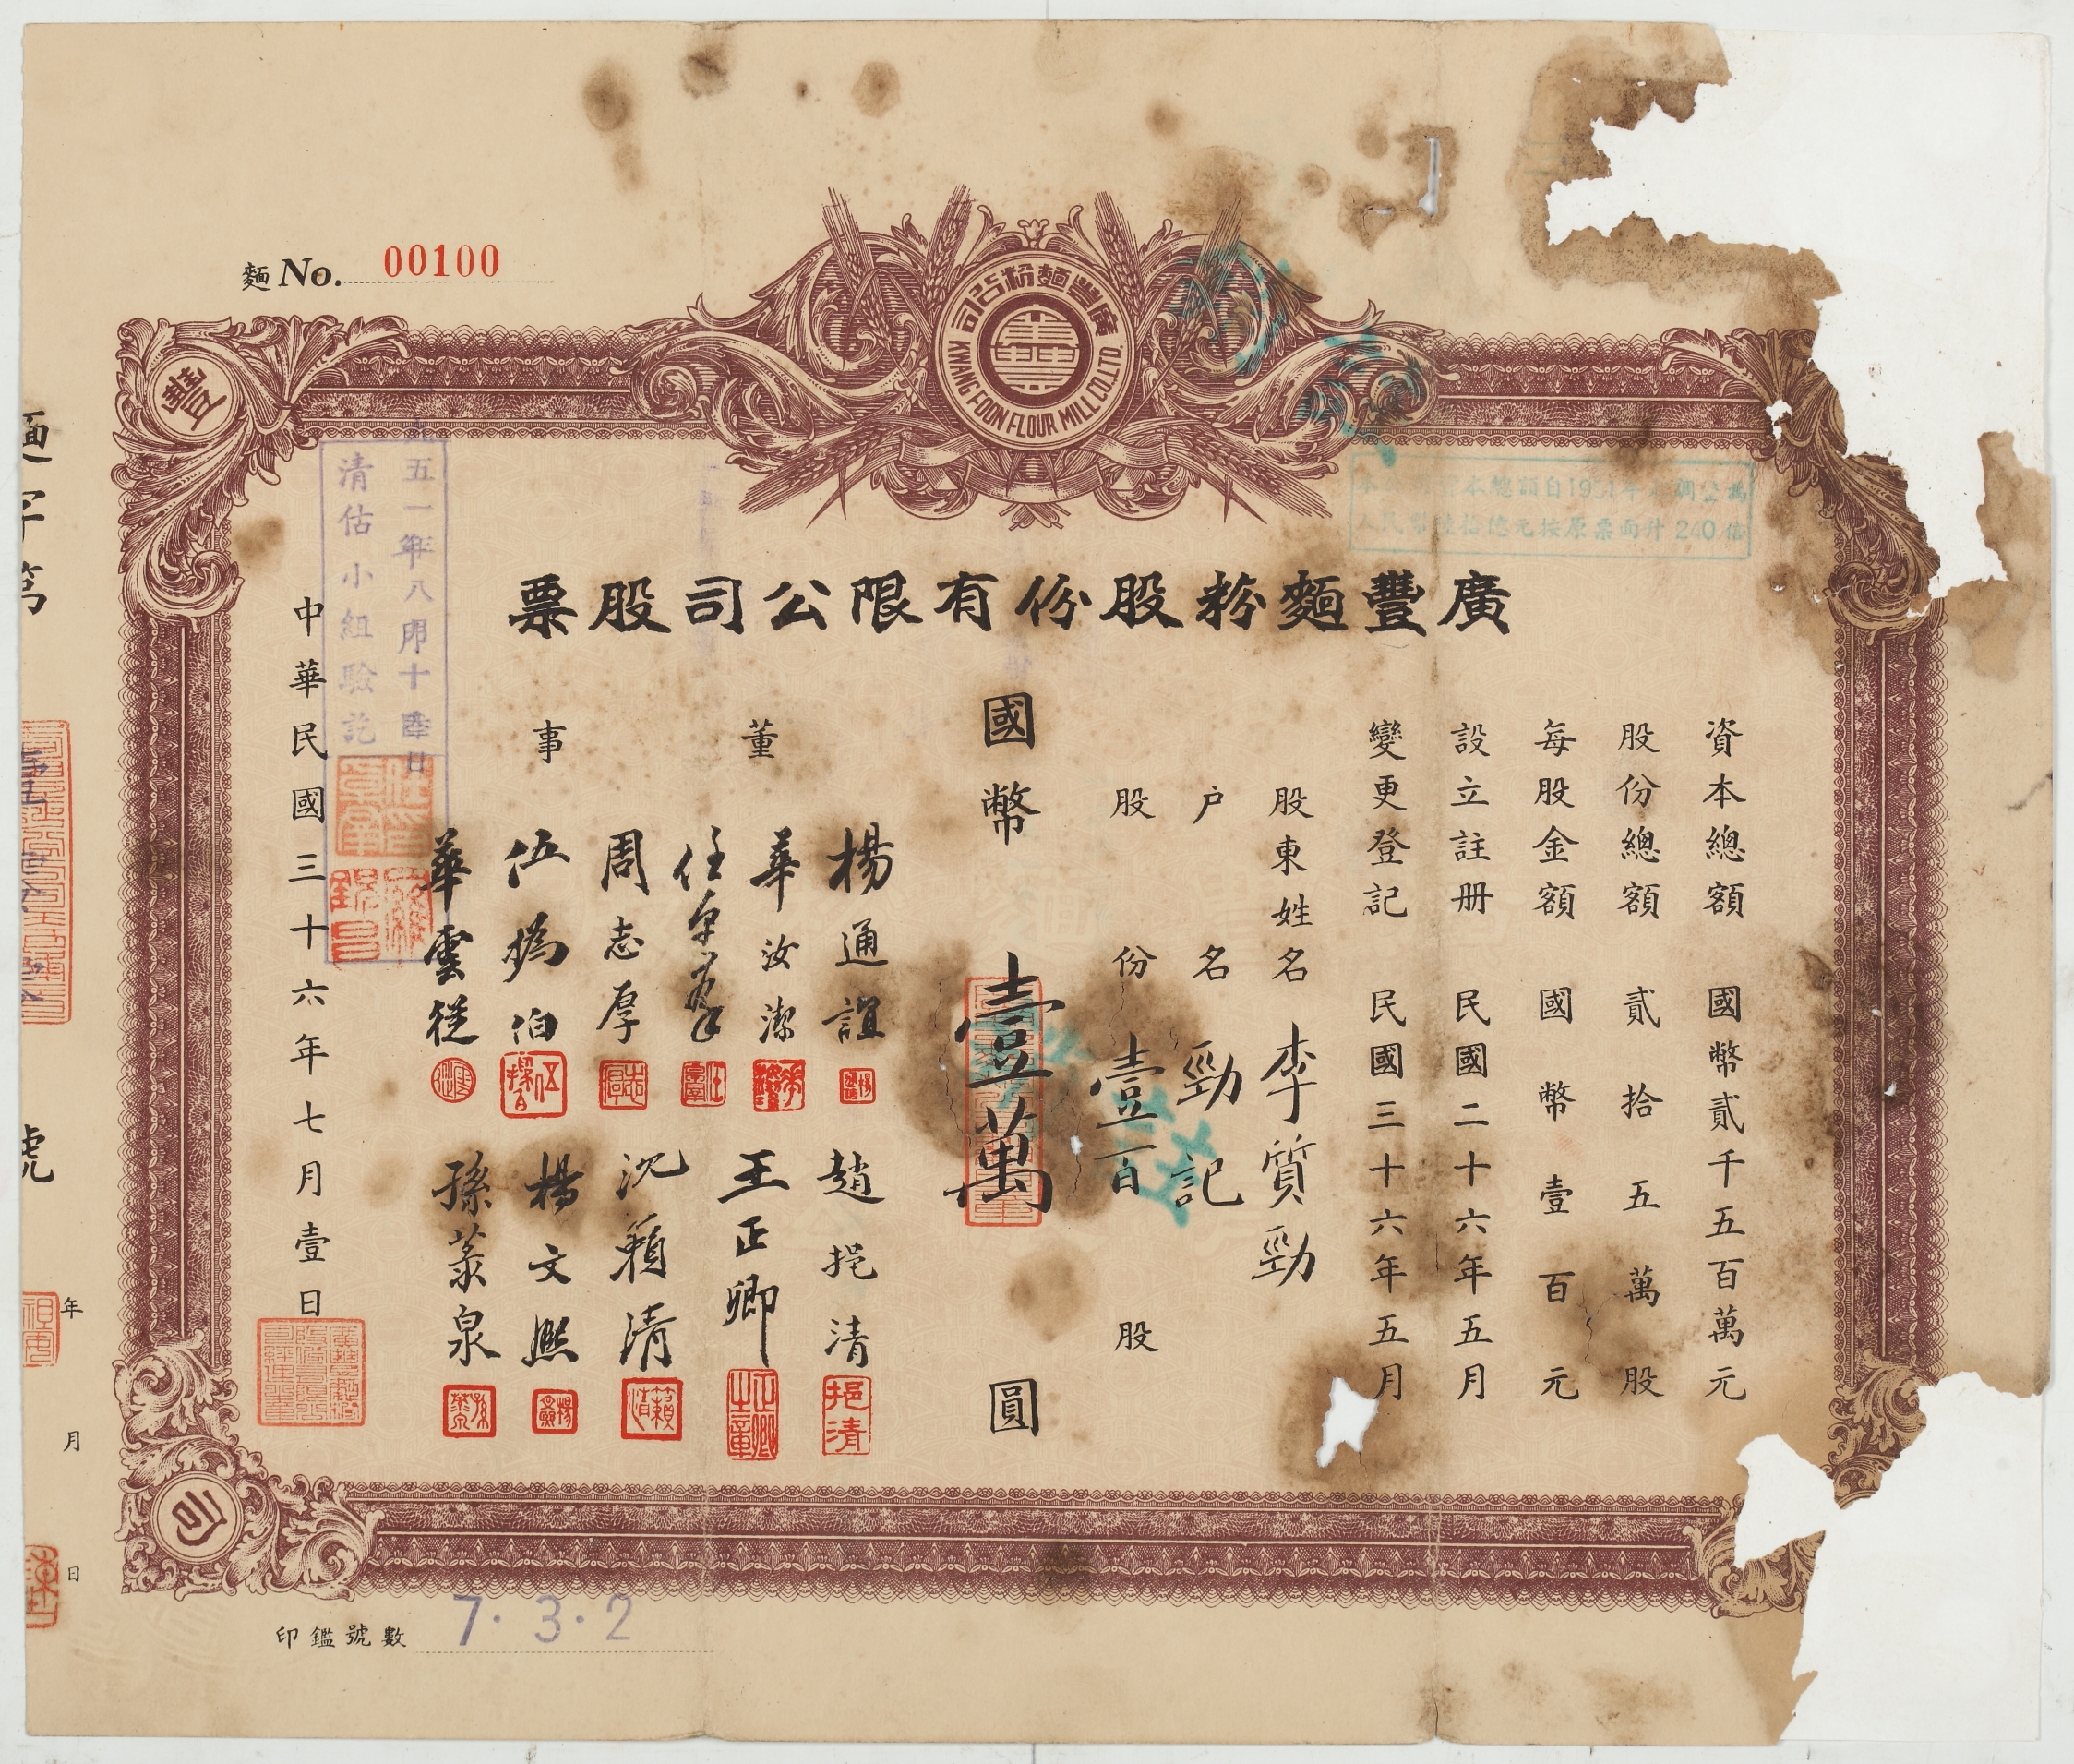 麵 No. 00100
廣豐麵粉公司
KWANG FOON FLOUR MILL CO., LTD.
豐
司
廣豐麵粉股份有限公司股票
資本總額 國幣貳千五百萬元
股份總額 貳拾五萬股
每股金額 國幣壹百元
設立註册 民國二十六年五月
變更登記 民國三十六年五月
股東姓名 李質勁
户名 勁記
股份 壹百股
國幣 壹萬 圓
董事
楊通誼
華汝潔
周志厚
華雲從
趙挹清
王正卿
沉籟清
楊文熙
挹清
籟清
中華民國三十六年七月壹日
五一年八月十 日
清估小組驗訖
本總額自1951年
人民幣 拾億元按原票面升240倍
印鑑號數 7·3·2
號
年 月 日